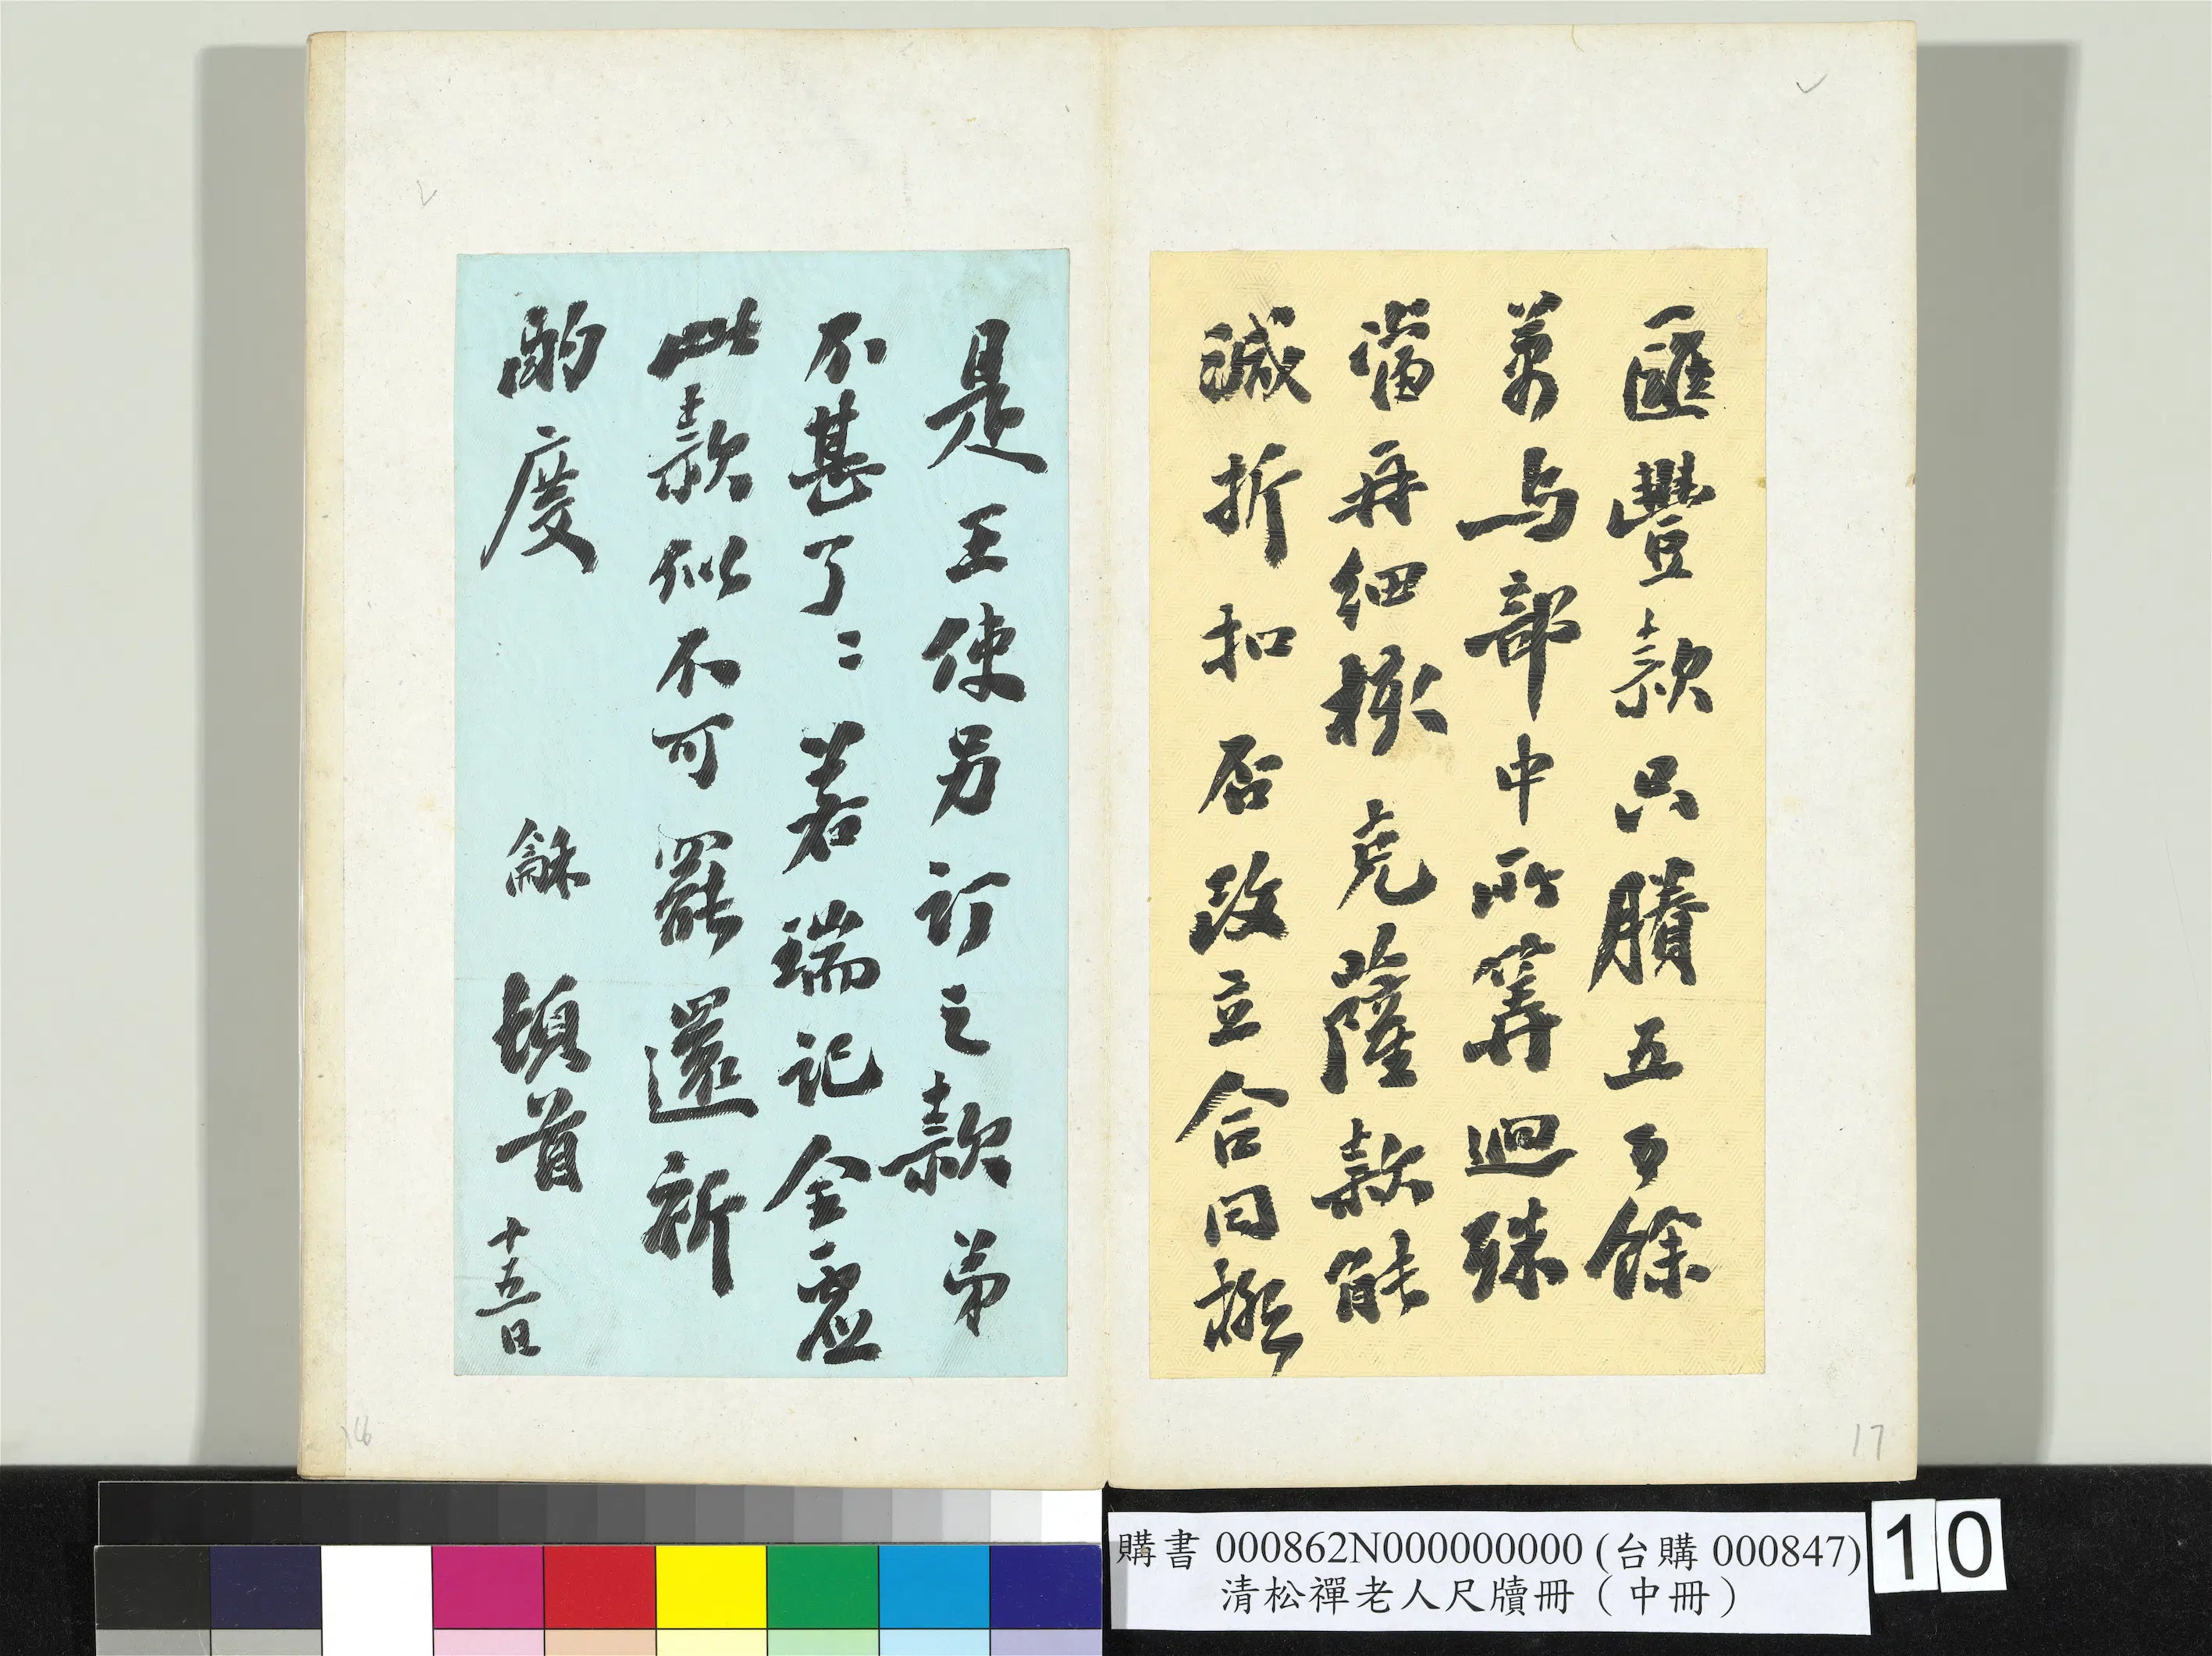 匯豐款只賸五百餘
萬与部中所筭迥殊
當再細檢克薩款能
減折扣否改立合同極
是王使另訂之款弟
不甚了〻若瑞記金虛
此款似不可罷還祈
酌度
龢
頓首
十五日
17
16
購書 000862N000000000 (台購 000847)
清松禪老人尺牘冊（中冊）
10